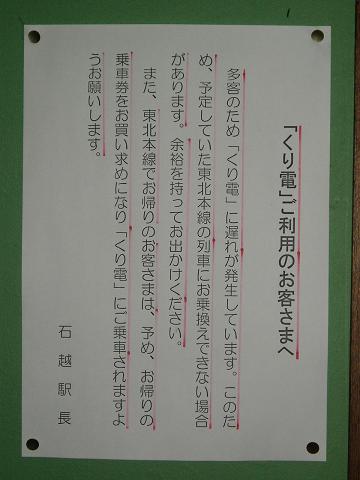 「くり電」ご利用のお客さまへ
多客のため「くり電」に遅れが発生しています。このた
め、予定していた東北本線の列車にお乗換えできない場合
があります。余裕を持ってお出かけください。
また、東北本線でお帰りのお客さまは、予め、お帰りの
乗車券をお買い求めになり「くり電」にご乗車されますよ
うお願いします。
石越駅長